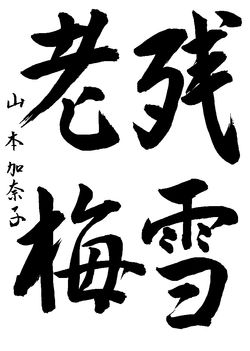 残雪
老梅
山本加奈子